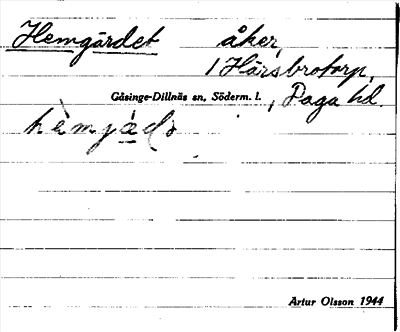 Hemgärdet åker,
1 Härsbrotorp,
Gåsinge-Dillnäs sn, Söderm. l. , Daga hd.
Artur Olsson 1944